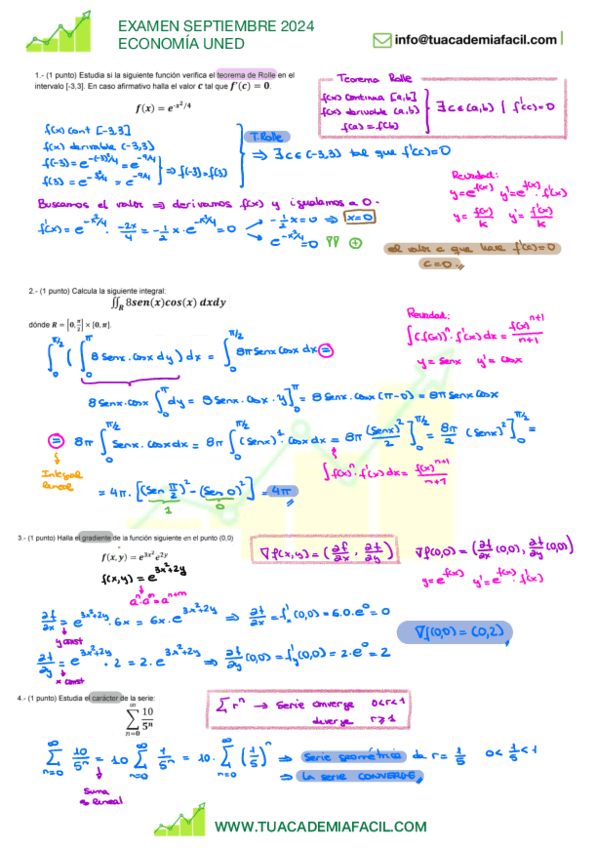 EXAMEN SEPTIEMBRE 2024
ECONOMÍA UNED
info@tuacademiafacil.com
1.- (1 punto) Estudia si la siguiente función verifica el teorema de Rolle en el
intervalo [-3,3]. En caso afirmativo halla el valor c tal que f'(c) = 0.
f(x) = e^{-x²/4}
Teorema Rolle
f(x) continua [a,b]
f(x) derivable (a,b) } ∃ c ∈ (a,b) | f'(c)=0
f(a) = f(b)
f(x) cont [-3,3]
f(x) derivable (-3,3)
f(-3) = e^{-(-3)²/4} = e^{-9/4}
f(3) = e^{-3²/4} = e^{-9/4} } ⇒ f(-3) = f(3)
T.Rolle
⇒ ∃ c ∈ (-3,3) tal que f'(c)=0
Recordad:
y = e^{f(x)} y' = e^{f(x)} · f'(x)
y = f(x)/k y' = f'(x)/k
Buscamos el valor ⇒ derivamos f(x) y igualamos a 0.
f'(x) = e^{-x²/4} · -2x/4 = -1/2 x · e^{-x²/4} = 0
-1/2 x = 0 ⇒ x=0
e^{-x²/4} = 0
el valor c que hace f'(c)=0
c=0
2.- (1 punto) Calcula la siguiente integral:
∬_R 8sen(x)cos(x) dxdy
dónde R = [0, π/2] × [0, π].
Recordad:
∫ (f(x))^n · f'(x) dx = f(x)^{n+1}/n+1
y = senx y' = cosx
∫_0^{π/2} ( ∫_0^π 8 senx · cosx dy ) dx = ∫_0^{π/2} 8π senx cosx dx =
8 senx · cosx ∫_0^π dy = 8 senx · cosx · y]_0^π = 8 senx · cosx (π-0) = 8π senx cosx
= 8π ∫_0^{π/2} senx · cosx dx = 8π ∫_0^{π/2} (senx)^1 · cosx dx = 8π (senx)²/2 ]_0^{π/2} = 8π/2 (senx)² ]_0^{π/2} =
Integral
lineal
∫ f(x)^n · f'(x) dx = f(x)^{n+1}/n+1
= 4π · [(sen π/2)² - (sen 0)²] = 4π
1 0
3.- (1 punto) Halla el gradiente de la función siguiente en el punto (0,0)
f(x, y) = e^{3x²}e^{2y}
∇f(x,y) = (∂f/∂x , ∂f/∂y)
∇f(0,0) = (∂f/∂x (0,0), ∂f/∂y (0,0))
f(x,y) = e^{3x²+2y}
y = e^{f(x)} y' = e^{f(x)} · f'(x)
a^n · a^m = a^{n+m}
∂f/∂x = e^{3x²+2y} · 6x = 6x · e^{3x²+2y} ⇒ ∂f/∂x = f'_x (0,0) = 6·0·e^0 = 0
y const
∇f(0,0) = (0,2)
∂f/∂y = e^{3x²+2y} · 2 = 2 · e^{3x²+2y} ⇒ ∂f/∂y (0,0) = f'_y (0,0) = 2·e^0 = 2
x const
4.- (1 punto) Estudia el carácter de la serie:
∑_{n=0}^∞ 10/5^n
∑ r^n → serie converge 0<r<1
diverge r≥1
∑_{n=0}^∞ 10/5^n = 10 ∑_{n=0}^∞ 1/5^n = 10 · ∑_{n=0}^∞ (1/5)^n ⇒ serie geométrica de r = 1/5 0< 1/5 <1
Suma
es lineal
⇒ La serie CONVERGE
WWW.TUACADEMIAFACIL.COM